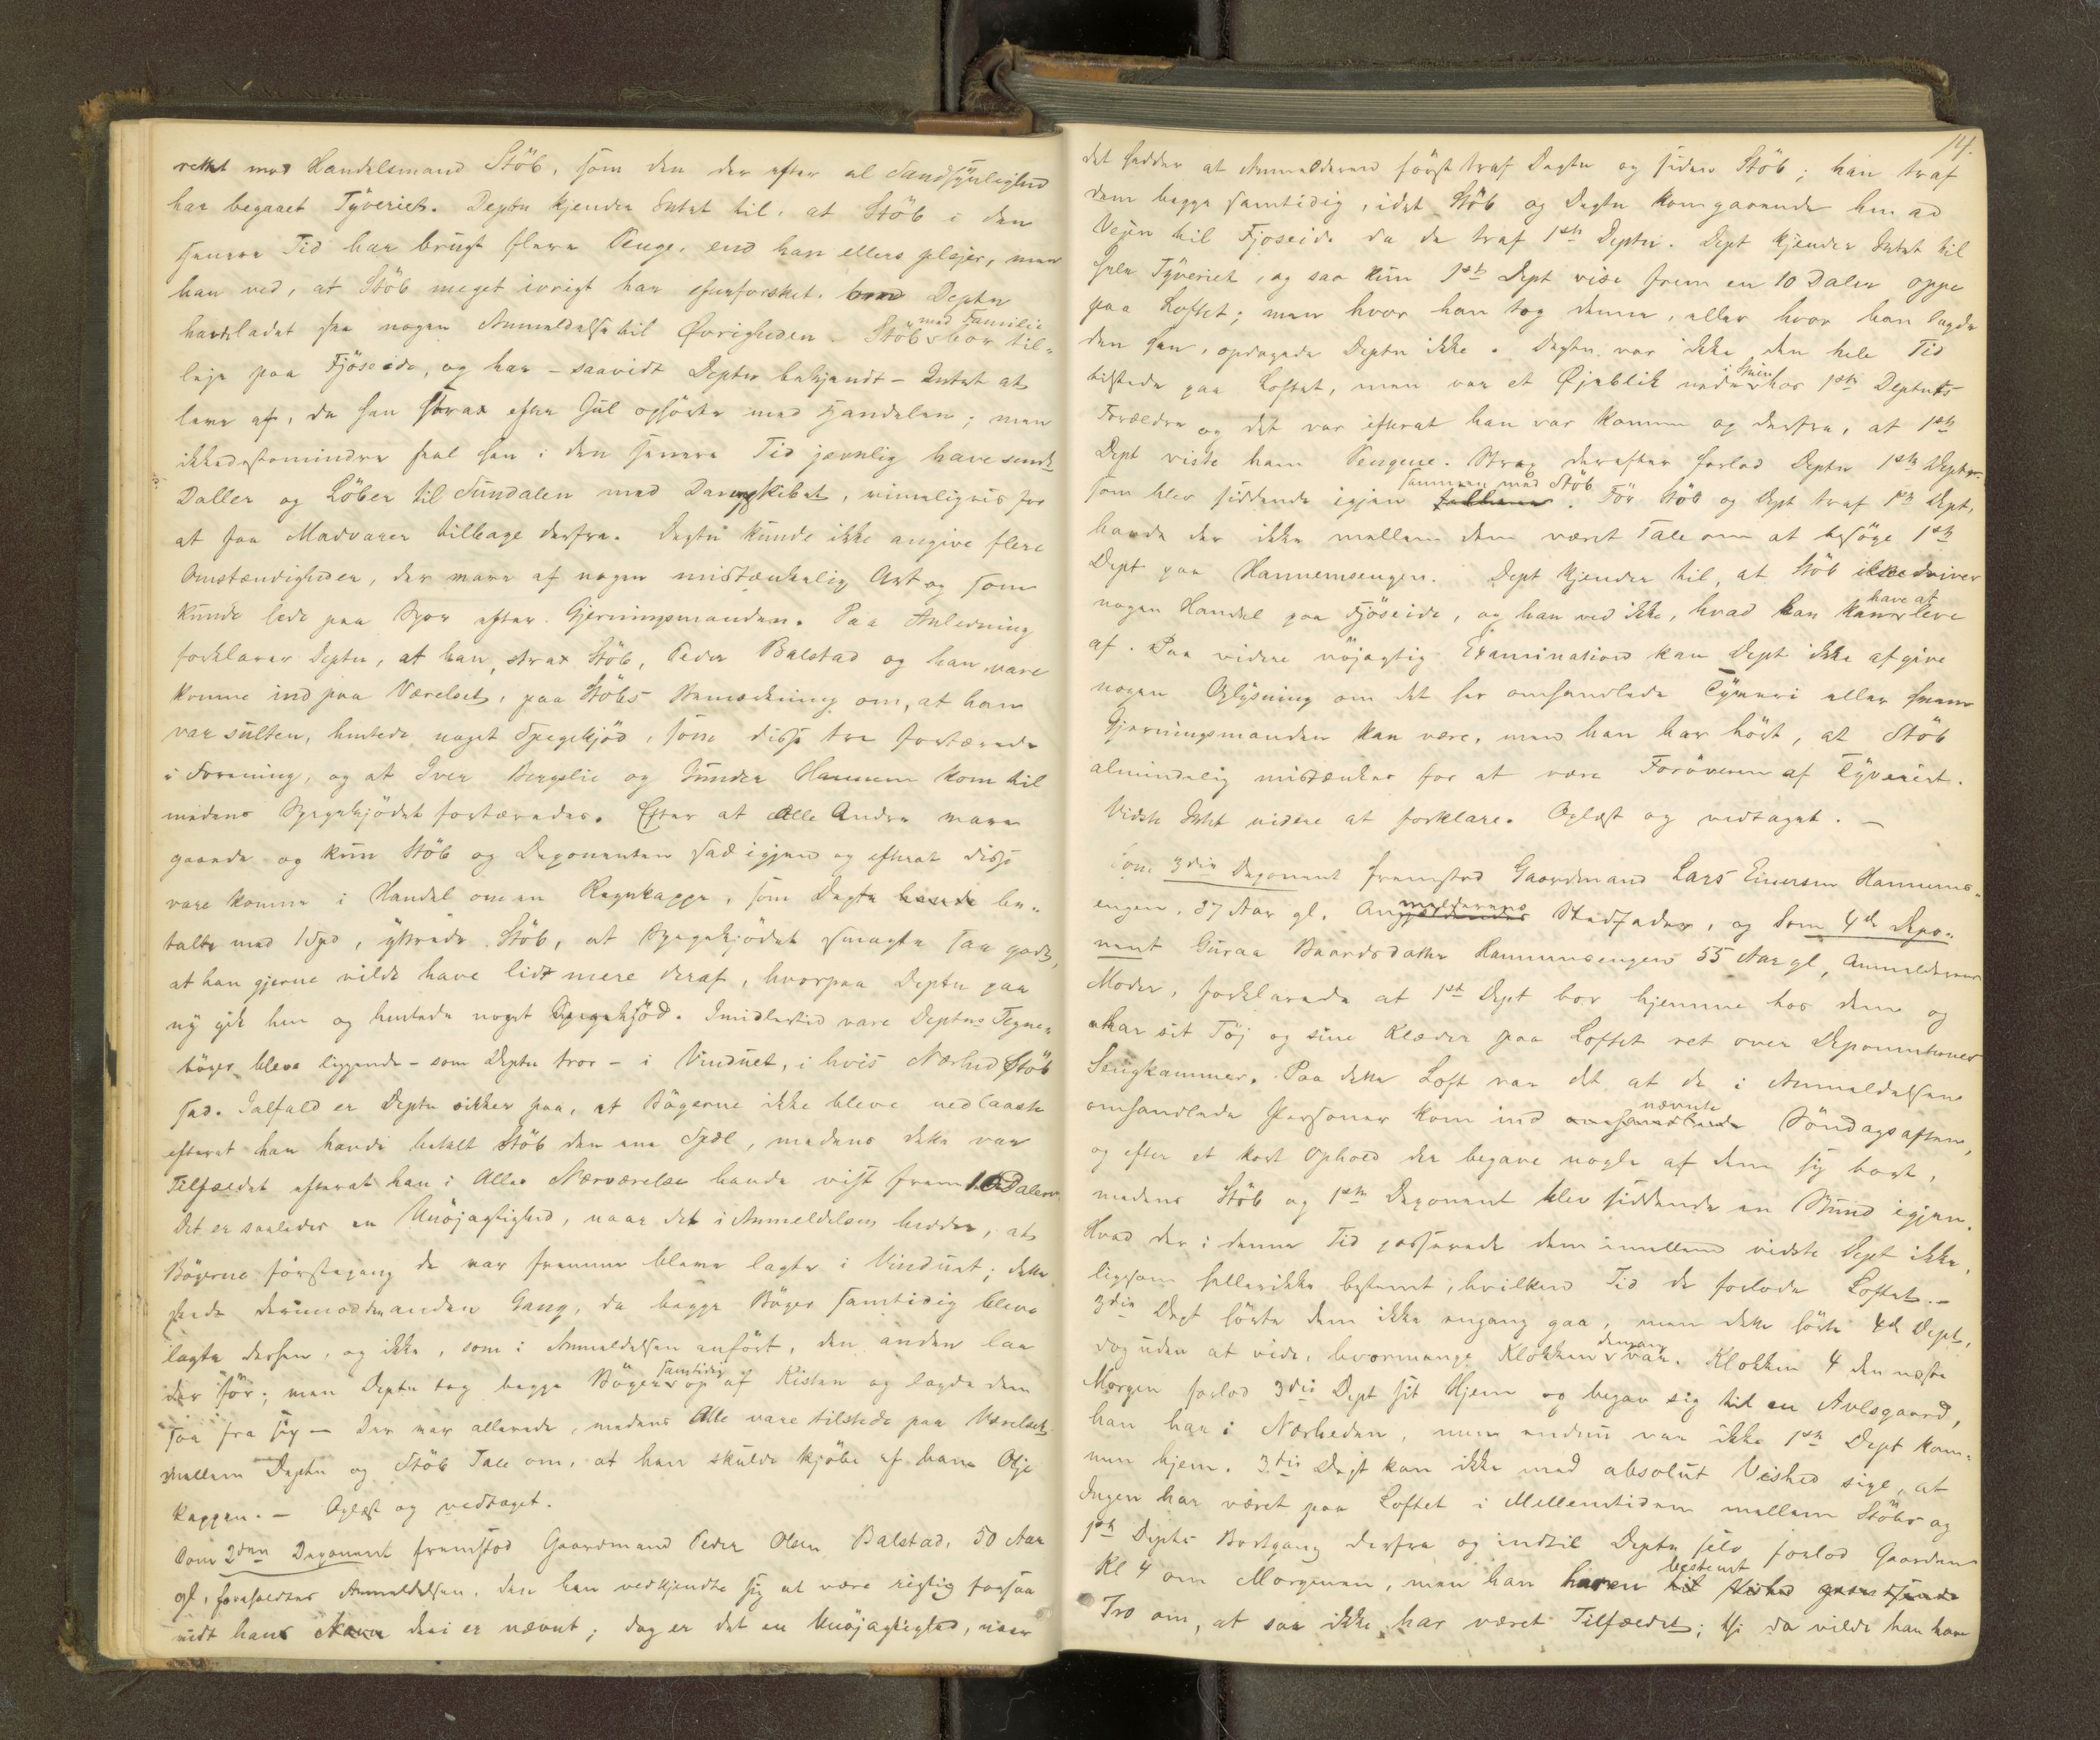 rettet mod Handelsmand Stöb, som den der efter al Sandsynlighed
har begaaet Tyveriet. Deptn kjender Intet til, at Stöb i den
senere Tid har brugt flere Penge, end han ellers plejer, men
han ved, at Stöb meget ivrigt har efterforsket, om Deptn
havde ladet ske nogen Anmeldelse til Øvrigheden. Stöb med Familie bor til-
leje paa Fjöseide, og har – saavidt Deptn bekjendt – Intet at
leve af, da han strax efter Jul ophörte med Handelen; men
ikkedestomindre skal han i den senere Tid jævnlig have sendt
Daller og Löber til Sundalen med Dampskibet, rimeligvis for
at faa Madvarer tilbage derfra. Deptn kunde ikke angive flere
Omstændigheder, der vare af nogen mistænkelig Art og som
kunde lede paa Spor efter Gjerningsmanden. Paa Anledning
forklarer Deptn, at han, strax Stöb, Peder Balstad og han vare
komne ind paa Værelset, paa Stöbs Bemærkning om, at han
var sulten, hentede noget Spegekjöd, som disse tre fortærede
i Forening, og at Iver Bergslie og Gunder Hannem kom til
medens Spegekjödet fortæredes. Efter at alle Andre vare
gaaede og kun Stöb og Deponenten sad igjen og efterat disse
vare komne i Handel om en Regnkappe, som Deptn havde be-
talt med 1 Spd, ytrede Stöb, at Spegekjödet smagte saa godt,
at han gjerne vilde have lidt mere deraf, hvorpaa Deptn paa
ny gik hen og hentede noget Spegekjöd. Imidlertid vare Deptns Tegne-
böger bleve liggende – som Deptn tror – i Vinduet, i hvis Nærhed Stöb
sad. Ialfald er Deptn sikker paa, at Bögerne ikke bleve nedlaaste
efterat han havde betalt Stöb den ene Spdl, medens dette var
Tilfældet efterat han i Alles Nærværelse havde vist frem 10 Daleren
Det er saaledes en Unöjagtighed, naar det i Anmeldelsen hedder, at
Bögerne förstegang de var fremme bleve lagte i Vinduet; dette
skede derimod den anden Gang, da begge Böger samtidig bleve
lagte derhen, og ikke, som i Anmeldelsen anfört, den anden laa
der för; men Deptn tog begge Böger samtidig op af Kisten og lagde dem
saa fra sig – Der var allerede, medens Alle vare tilstede paa Værelset
mellem Deptn og Stöb Tale om, at han skulde kjöbe af ham Olje
kappen. – Oplæst og vedtaget.
Som 2den Deponent fremstod Gaardmand Peder Olsen Balstad, 50 Aar
gl, foreholdtes Anmeldelsen, den han vedkjendte sig at være rigtig forsaa
vidt hans Navn deri er nævnt; dog er det en Unöjagtighed, naar
14.
det hedder at Anmelderen först traf Deptn og siden Stöb; han traf
dem begge samtidig, idet Stöb og Deptn kom gaaende hen ad
Vejen til Fjoseide da de traf 1ste Deptn. Dept kjender Intet til
hele Tyveriet, og saa kun 1ste Dept vise frem en 10 Daler oppe
paa Loftet; men hvor han tog denne, eller hvor han lagde
den hen, opdagede Deptn ikke. Deptn var ikke den hele Tid
tilstede paa Loftet, men var et Øjeblik nede hos 1ste Deptns
Forældre og det var efterat han var kommen op derfra, at 1ste
Dept viste ham Pengene. Strax derefter forlod Deptn 1ste Deptn
som blev siddende igjen sammen med Stöb. För Stöb og Dept traf 1ste Dept,
havde der ikke mellem dem været Tale om at besöge 1ste
Dept paa Hannemsengen. Dept kjender til, at Stöb ikke driver
nogen Handel paa Fjöseide, og han ved ikke, hvad han kan have at leve
af. Paa videre nöjagtig Examination kan Dept ikke afgive
nogen Oplysning om det her omhandlede Tyveri eller hvem
Gjerningsmanden kan være, men han har hört, at Stöb
almindelig mistænkes for at være Foröveren af Tyveriet.
Vidste Intet videre at forklare. Oplæst og vedtaget. –
Som 3die Deponent fremstod Gaardmand Lars Einersen Hannems-
engen, 37 Aar gl. Anmelderens Stedfader, og Som 4de Depo-
nent Guraa Baardsdatter Hannemsengen 55 Aar gl, Anmelderens
Moder, forklarede at 1ste Dept bor hjemme hos dem og
har sit Töj og sine Klæder paa Loftet ret over Deponenternes
Sengkammer. Paa dette Loft var det at de i Anmeldelsen
omhandlede Personer kom ind nævnte Söndagsaften,
og efter et kort Ophold der begave nogle af dem sig bort,
medens Stöb og 1ste Deponent blev siddende en Stund igjen.
Hvad der i denne Tid passerede dem imellem vidste Dept ikke,
ligesom hellerikke bestemt, hvilken Tid de forlode Loftet. –
3die Dept hörte dem ikke engang gaa, men dette hörte 4de Dept,
dog uden at vide, hvormange Klokken var. Klokken 4 den næste
Morgen forlod 3die Dept sit Hjem og begav sig til en Avlsgaard,
han har i Nærheden, men endnu var ikke 1ste Dept kom-
men hjem. 3die Dept kan ikke med absolut Vished sige, at
Ingen har været paa Loftet i Mellemtiden mellem Stöbs og
1ste Deptns Bortgang derfra og indtil Deptn selv forlod Gaarden
Kl 4 om Morgenen, men han har en bestemt
Tro om, at saa ikke har været Tilfældet; thi da vilde han have